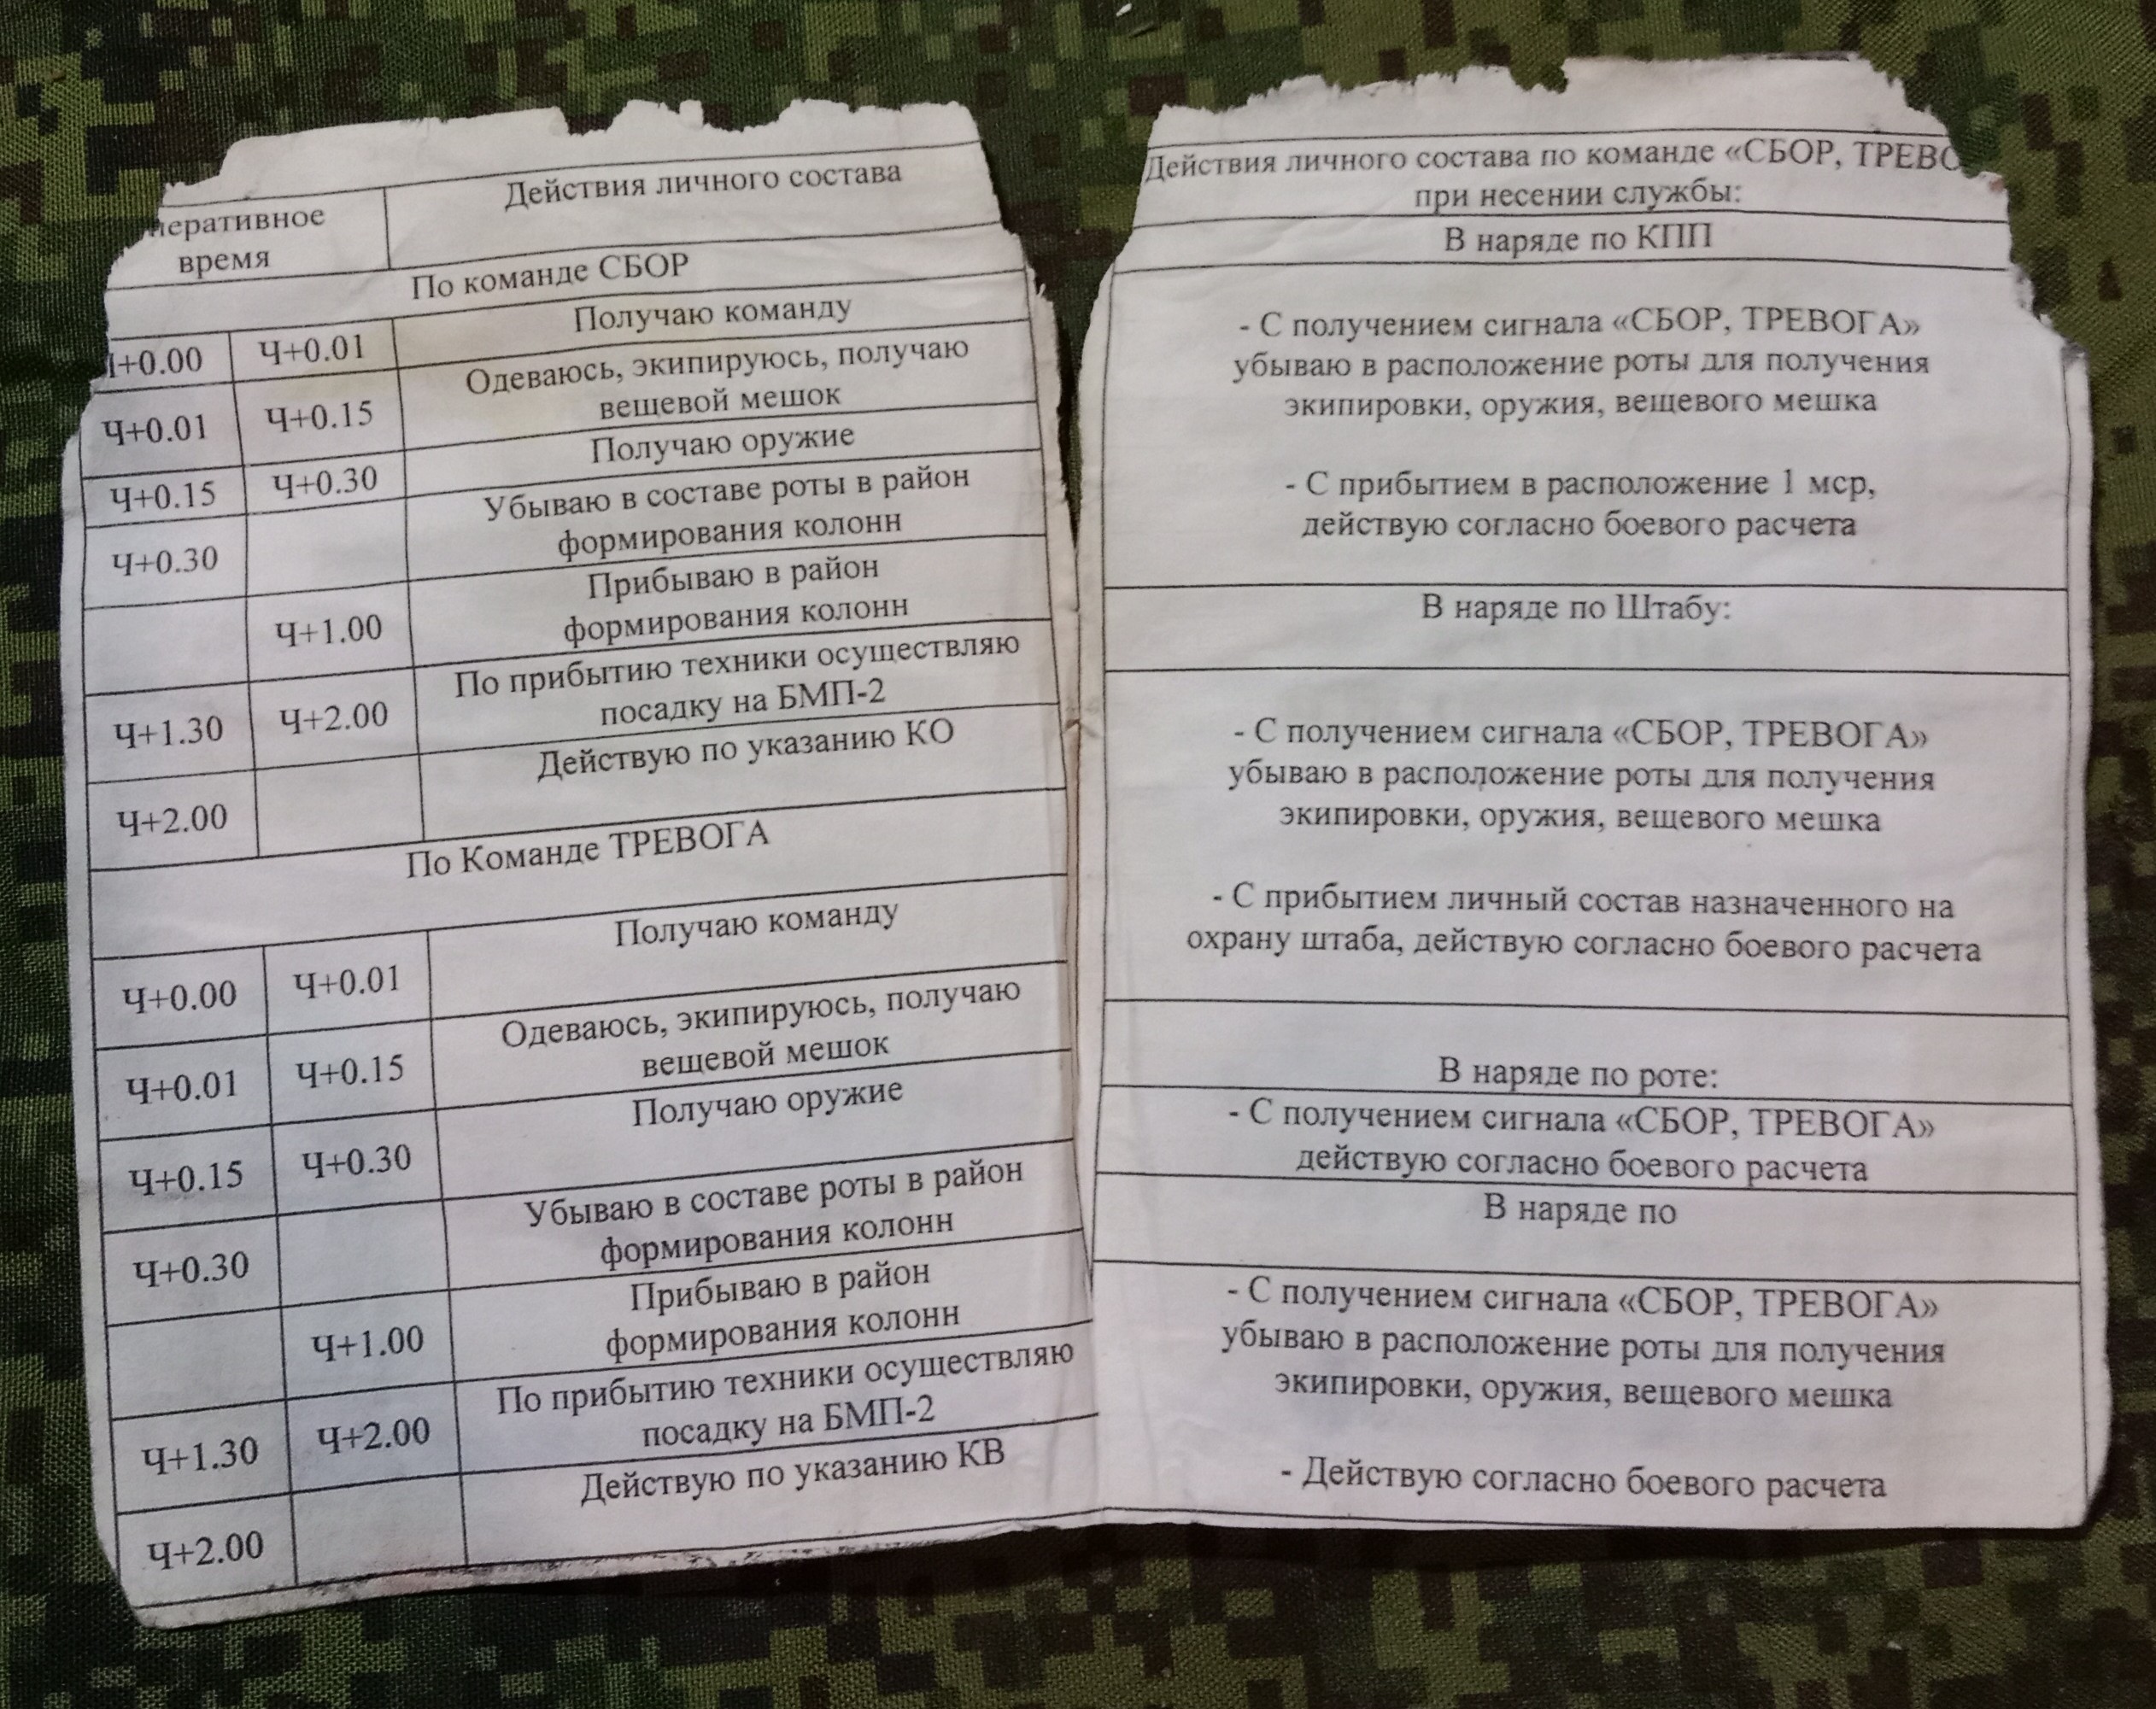 перативное
время
Действия личного состава
По команде СБОР
Ч+0.00 Ч+0.01 Получаю команду
Ч+0.01 Ч+0.15 Одеваюсь, экипируюсь, получаю
вещевой мешок
Ч+0.15 Ч+0.30 Получаю оружие
Ч+0.30 Убываю в составе роты в район
формирования колонн
Ч+1.00 Прибываю в район
формирования колонн
Ч+1.30 Ч+2.00 По прибытию техники осуществляю
посадку на БМП-2
Ч+2.00 Действую по указанию КО
По Команде ТРЕВОГА
Ч+0.00 Ч+0.01 Получаю команду
Ч+0.01 Ч+0.15 Одеваюсь, экипируюсь, получаю
вещевой мешок
Ч+0.15 Ч+0.30 Получаю оружие
Ч+0.30 Убываю в составе роты в район
формирования колонн
Ч+1.00 Прибываю в район
формирования колонн
Ч+1.30 Ч+2.00 По прибытию техники осуществляю
посадку на БМП-2
Ч+2.00 Действую по указанию КВ
Действия личного состава по команде «СБОР, ТРЕВО
при несении службы:
В наряде по КПП
- С получением сигнала «СБОР, ТРЕВОГА»
убываю в расположение роты для получения
экипировки, оружия, вещевого мешка
- С прибытием в расположение 1 мср,
действую согласно боевого расчета
В наряде по Штабу:
- С получением сигнала «СБОР, ТРЕВОГА»
убываю в расположение роты для получения
экипировки, оружия, вещевого мешка
- С прибытием личный состав назначенного на
охрану штаба, действую согласно боевого расчета
В наряде по роте:
- С получением сигнала «СБОР, ТРЕВОГА»
действую согласно боевого расчета
В наряде по
- С получением сигнала «СБОР, ТРЕВОГА»
убываю в расположение роты для получения
экипировки, оружия, вещевого мешка
- Действую согласно боевого расчета